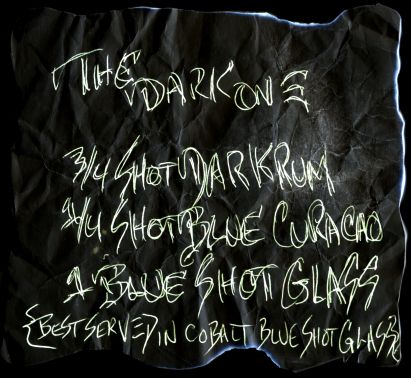 THE DARK ONE
3/4 SHOT DARK RUM
1/4 SHOT BLUE CURACAO
1 BLUE SHOT GLASS
{BEST SERVED IN COBALT BLUE SHOT GLASS}